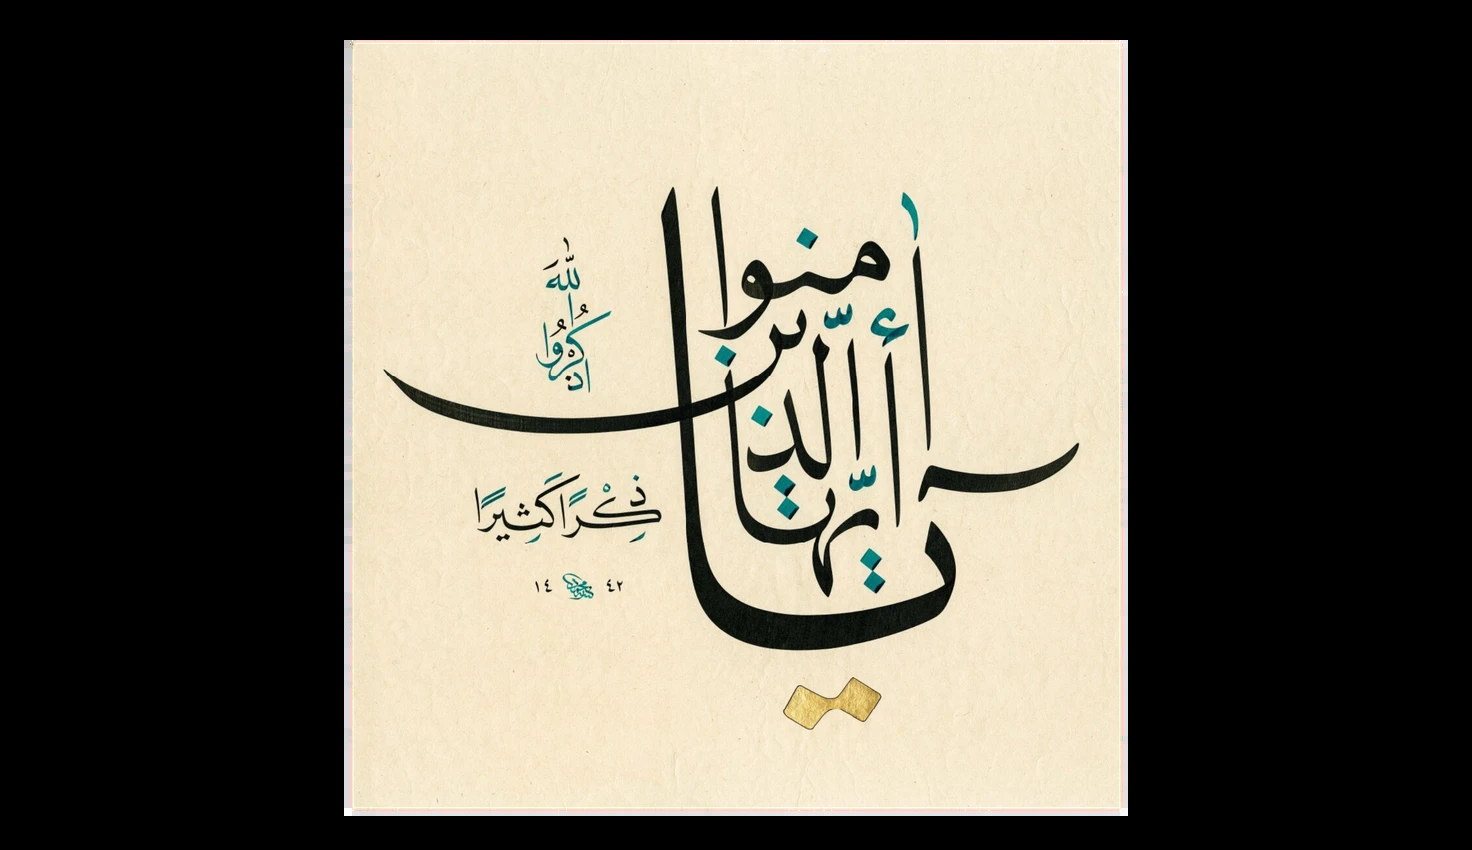 يا أيها الذين آمنوا
اذكُرُوا اللهَ
ذِكْرًا كَثِيرًا
١٤ ٤٢